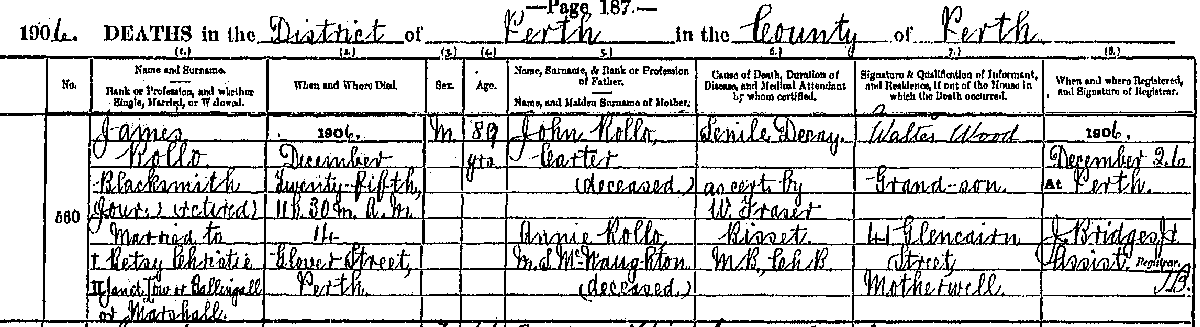 —Page 187.—
1906. DEATHS in the District of Perth in the County of Perth
(1.) (2.) (3.) (4.) 5.) 6.) 7.) (8.)
No.
Name and Surname.
Rank or Profession, and whether
Single, Married, or Widowed.
When and Where Died.
Sex.
Age.
Name, Surname, & Rank or Profession
of Father.
Name, and Maiden Surname of Mother.
Cause of Death, Duration of
Disease, and Medical Attendant
by whom certified.
Signature & Qualification of Informant,
and Residence, if out of the House in
which the Death occurred.
When and where Registered,
and Signature of Registrar.
560
James
Rollo
Blacksmith
(jour.) (retired)
Married to
I Betsy Christie
II Janet Low or Ballingall
or Marshall.
1906.
December
Twenty-fifth,
11h. 30m. A.M.
14
Glover Street,
Perth.
M
89
yrs
John Rollo,
Carter
(deceased.)
Annie Rollo
M.S. McNaughton
(deceased.)
Senile Decay.
as cert by
W. Fraser
Bisset.
M.B., Ch.B.
Walter Wood
Grand-son.
41 Glencairn
Street,
Motherwell.
1906.
December 26
At Perth.
J. Bridges Jr
Assist. Registrar.
J.B.